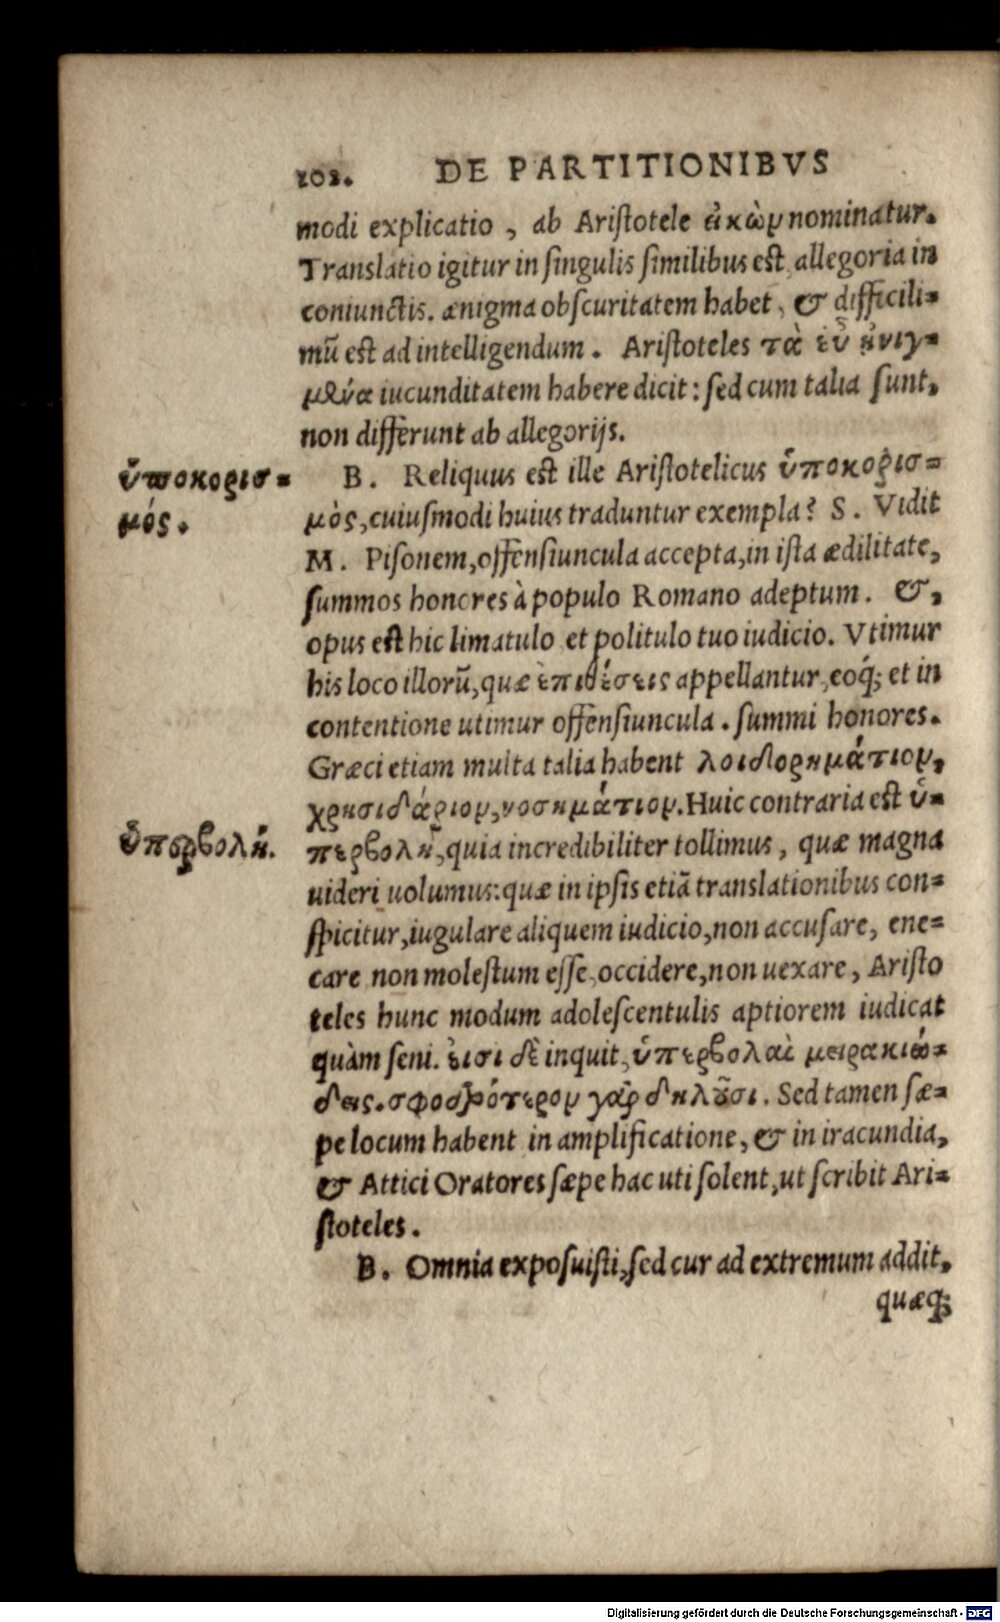 102. DE PARTITIONIBVS
modi explicatio, ab Aristotele εἰκὼν nominatur.
Translatio igitur in singulis similibus est, allegoria in
coniunctis. ænigma obscuritatem habet, & difficili=
mũ est ad intelligendum. Aristoteles τὰ εὖ ᾐνιγ=
μένα iucunditatem habere dicit: sed cum talia sunt,
non differunt ab allegorijs.
ὑποκορισ=
μός.
B. Reliquus est ille Aristotelicus ὑποκορισ=
μὸς, cuiusmodi huius traduntur exempla? S. Vidit
M. Pisonem, offensiuncula accepta, in ista ædilitate,
summos honores à populo Romano adeptum. &,
opus est hic limatulo et politulo tuo iudicio. Vtimur
his loco illorũ, quæ ἐπιθέσεις appellantur, eoq́; et in
contentione utimur offensiuncula. summi honores.
Græci etiam multa talia habent λοιδορημάτιον,
χρησιδάριον, νοσημάτιον. Huic contraria est ὑ=
ὑπερβολή.
περβολὴ, quia incredibiliter tollimus, quæ magna
uideri uolumus: quæ in ipsis etiã translationibus con=
spicitur, iugulare aliquem iudicio, non accusare, ene=
care non molestum esse, occidere, non uexare, Aristo
teles hunc modum adolescentulis aptiorem iudicat
quàm seni. εἰσὶ δὲ inquit, ὑπερβολαὶ μειρακιώ=
δεις. σφοδρότερον γὰρ δηλοῦσι. Sed tamen sæ=
pe locum habent in amplificatione, & in iracundia,
& Attici Oratores sæpe hac uti solent, ut scribit Ari=
stoteles.
B. Omnia exposuisti, sed cur ad extremum addit,
quæq;
Digitalisierung gefördert durch die Deutsche Forschungsgemeinschaft - DFG